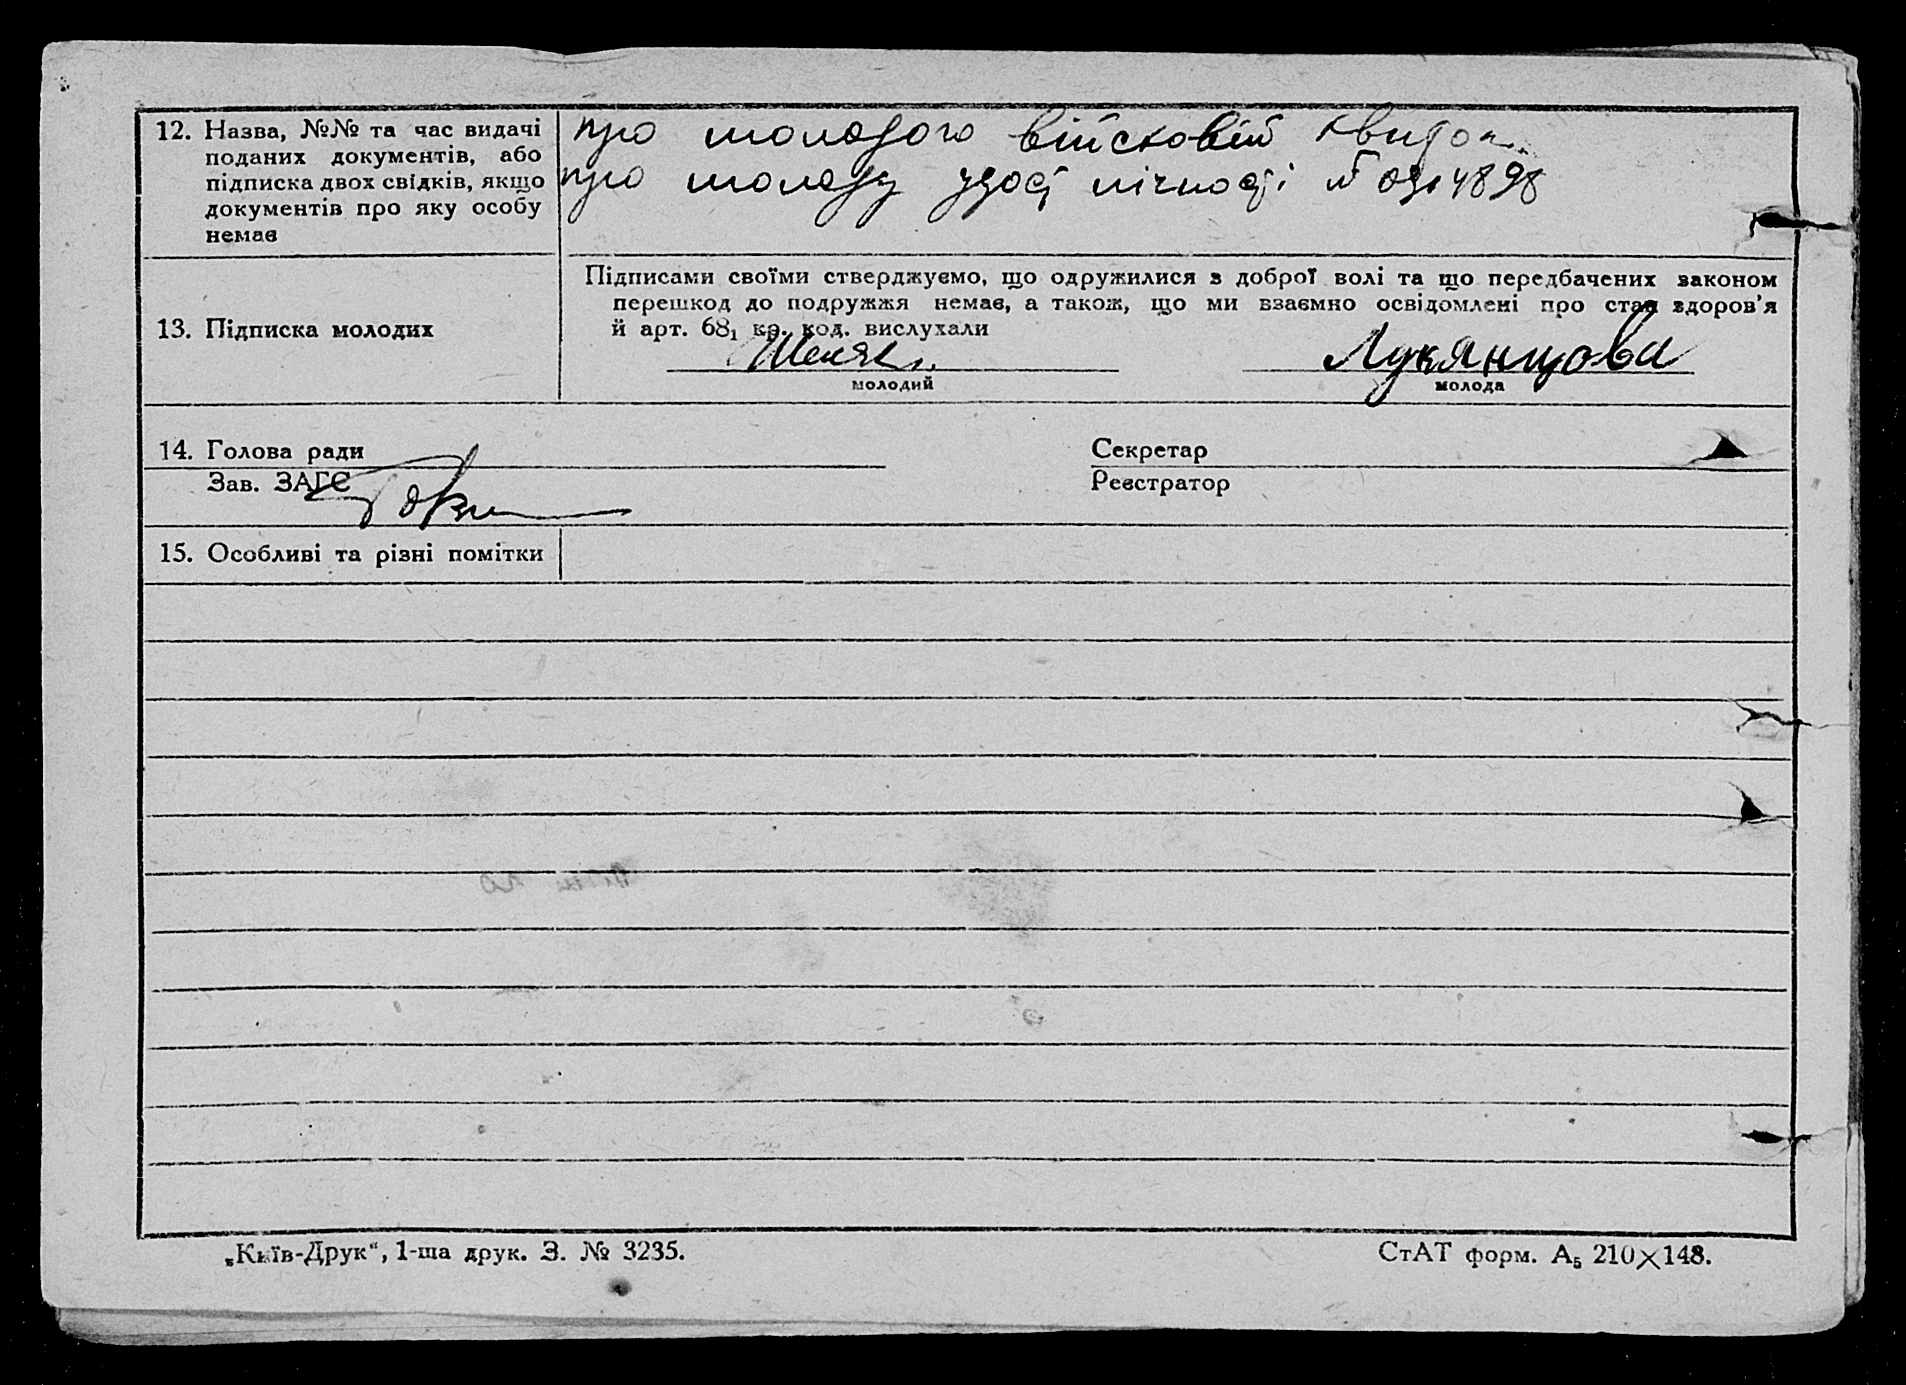 12. Назва, №№ та час видачі
поданих документів, або
підписка двох свідків, якщо
документів про яку особу
немає
про молодого військовій квиток
про молоду удост лічності №
13. Підписка молодих
Підписами своїми стверджуємо, що одружилися з доброї волі та що передбачених законом
перешкод до подружжя немає, а також, що ми взаємно освідомлені про стан здоров'я
й арт. 68₁ кр. код. вислухали
молодий
Лукянцова
молода
14. Голова ради
Секретар
Зав. ЗАГС
Реєстратор
15. Особливі та різні помітки
„Київ-Друк“, 1-ша друк. З. № 3235.
СтАТ форм. А₅ 210×148.